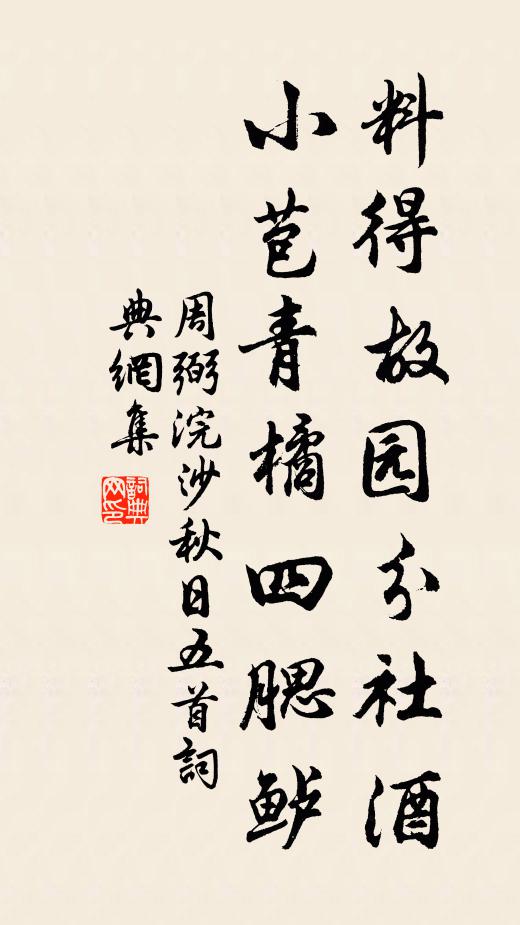 料得故园分社酒
小苞青橘四腮鲈
周弼浣沙秋日五首詞
典網集
詞典
网印